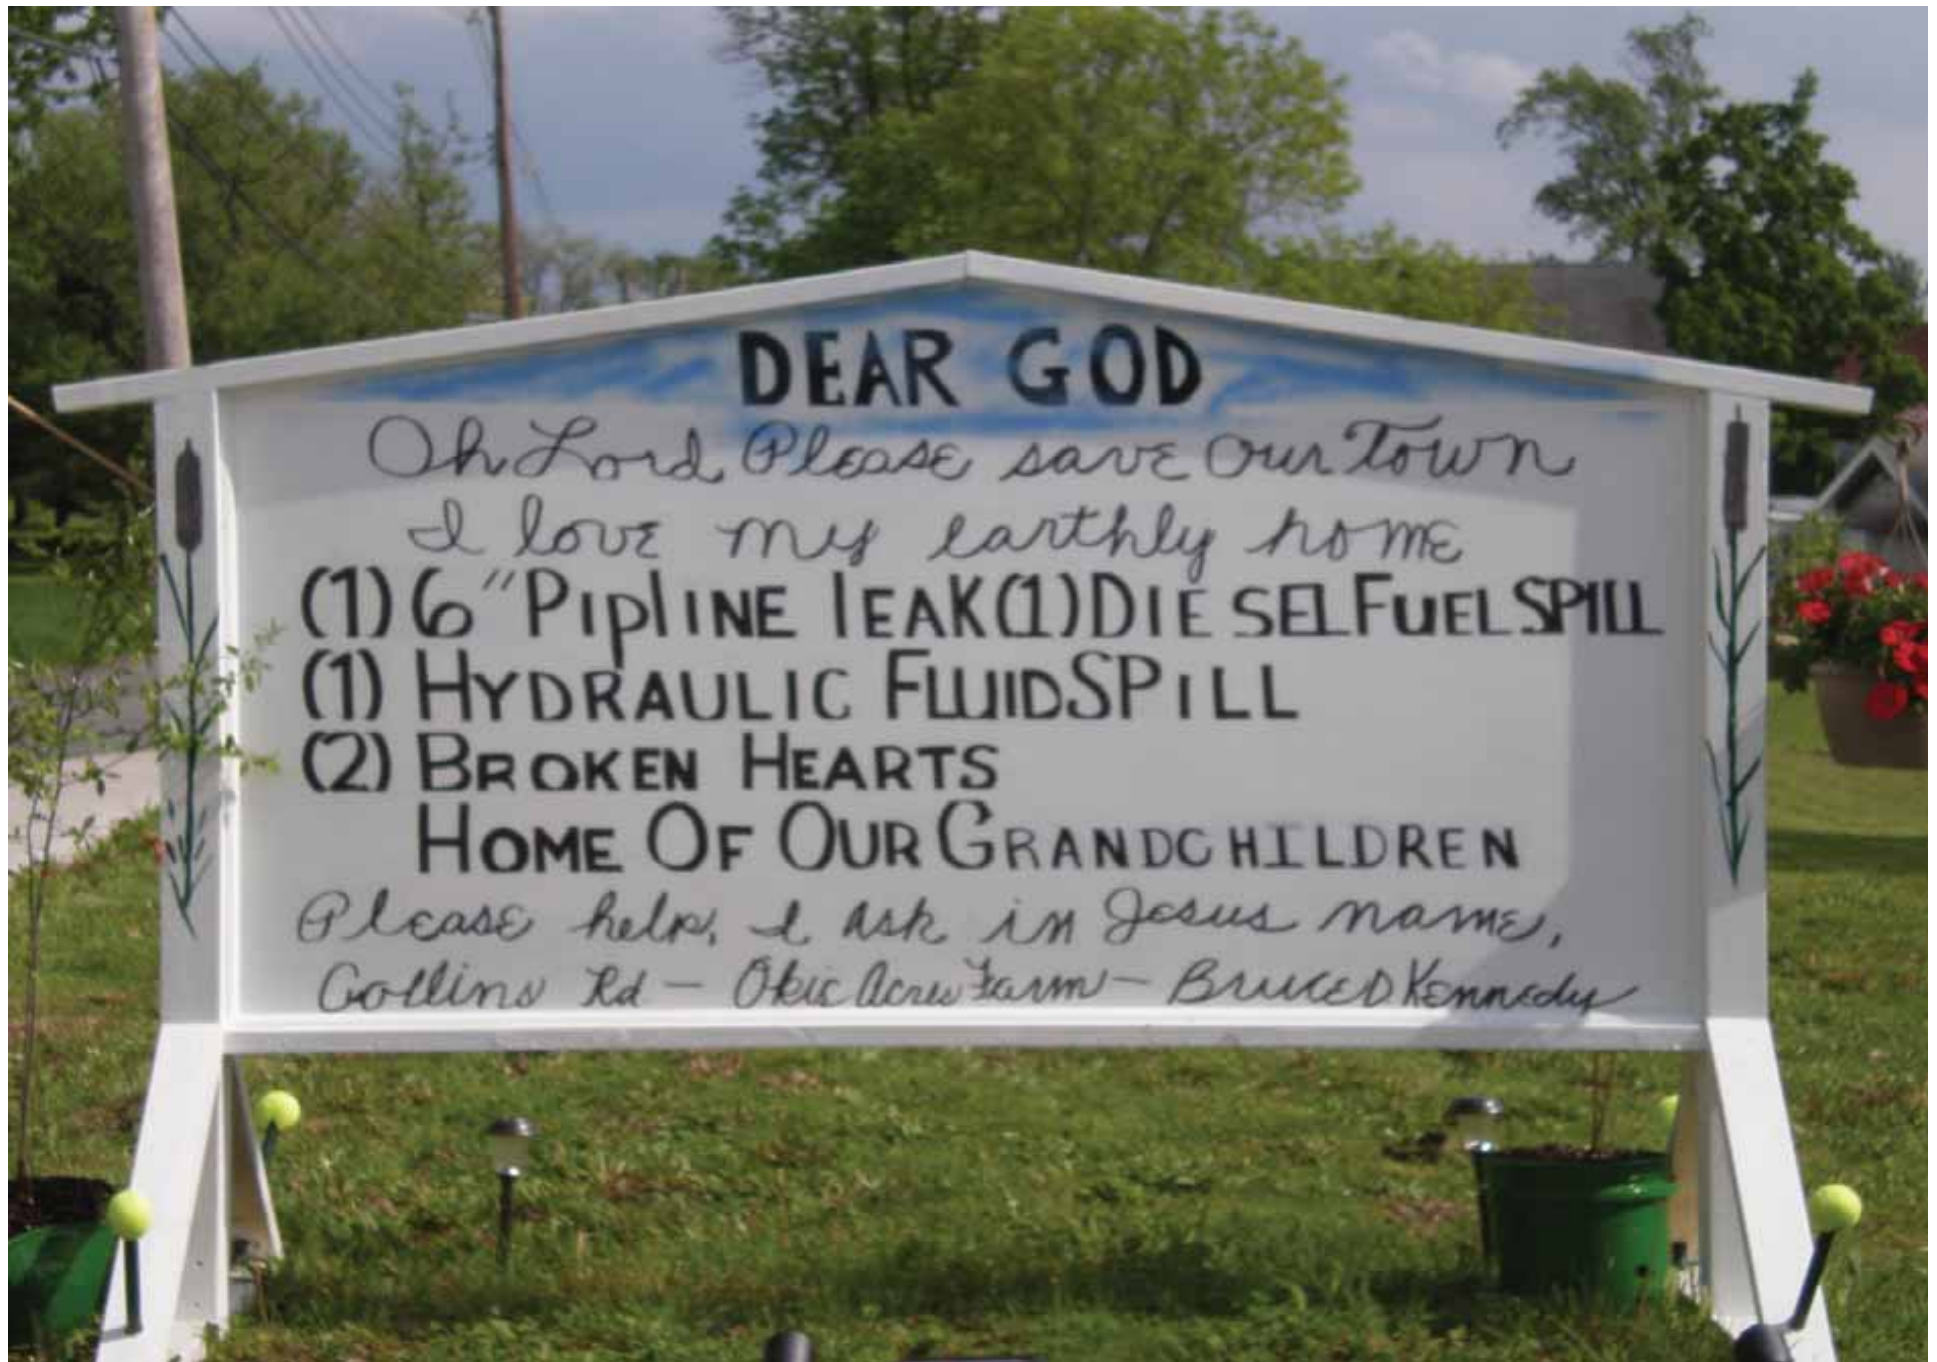 DEAR GOD
Oh Lord, Please save our Town
I love my earthly home
(1) 6" PiplINE lEAK (1) DIESEL FUEL SPILL
(1) HYDRAULIC FLUID SPiLL
(2) BROKEN HEARTS
HOME OF OUR GRANDCHILDREN
Please help, I ask in Jesus name,
Collins Rd - Okie Acres Farm - Bruce D Kennedy